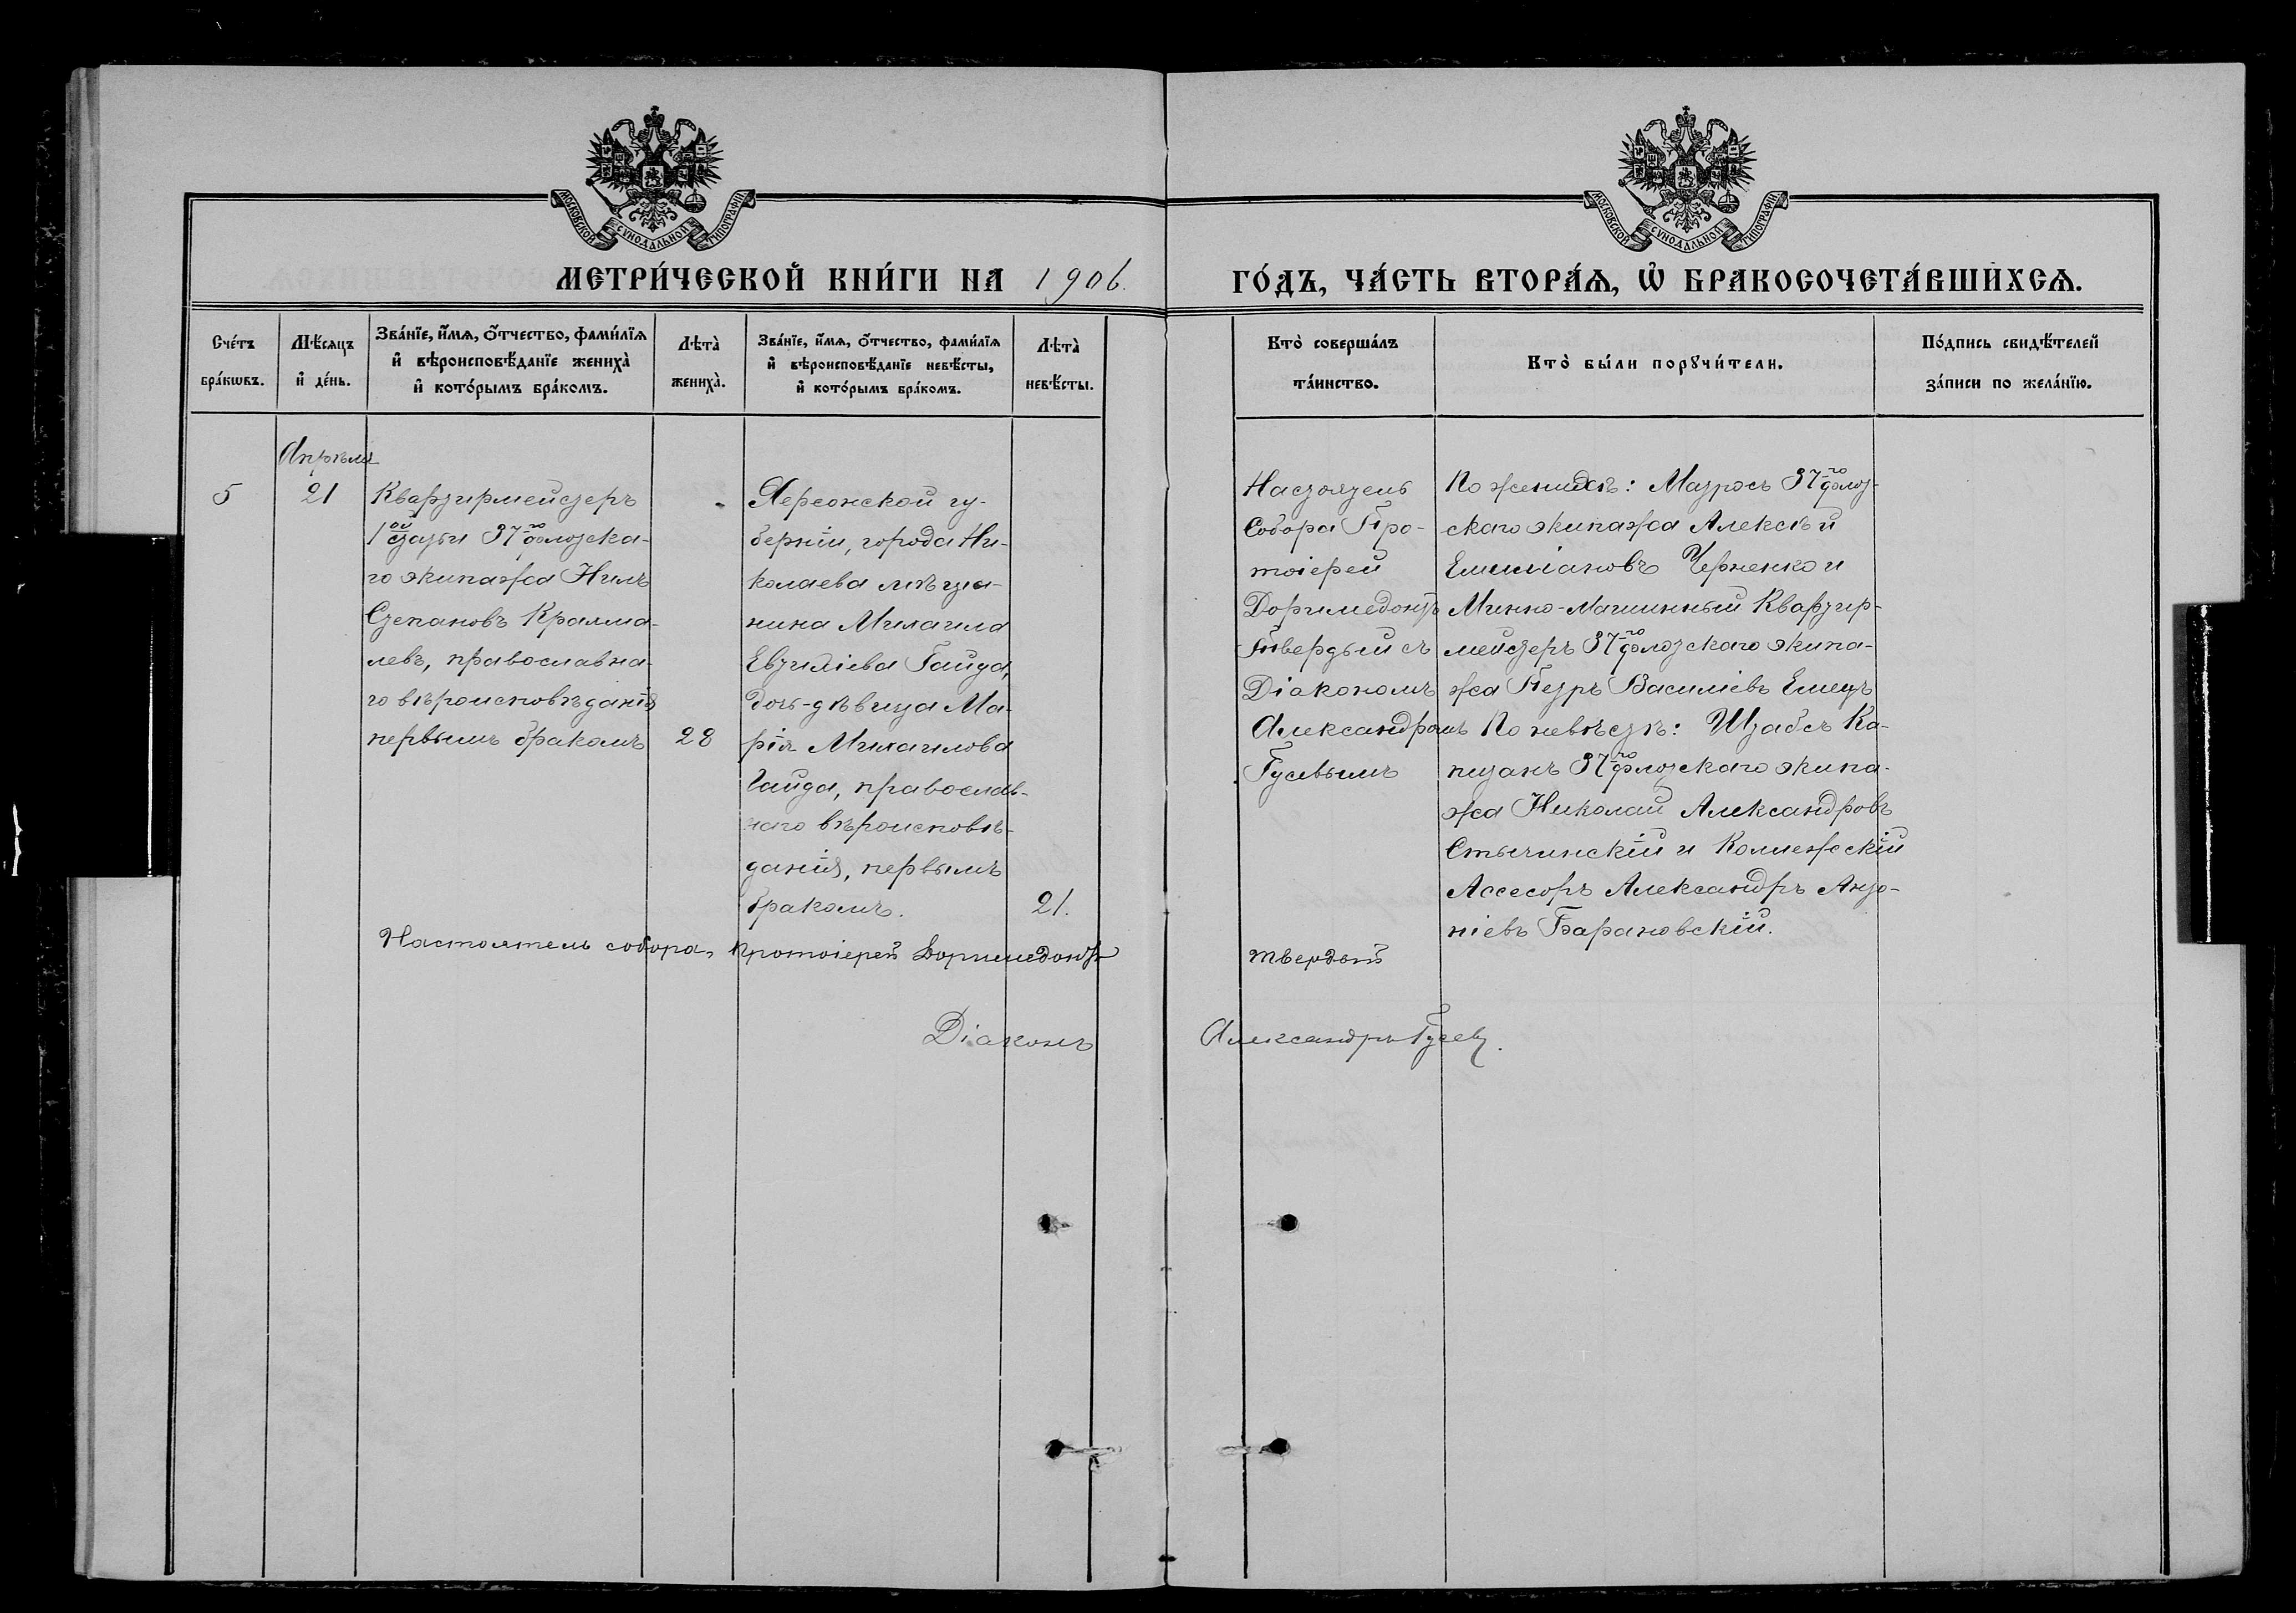 МОСКОВСКОЙ СѴНОДАЛЬНОЙ ТИПОГРАФІИ
МЕТРИ́ЧЕСКОЙ КНИ́ГИ НА 1906.
Сче́тъ бра́кѡвъ.
Мѣ́сяцъ и҆ де́нь.
Зва́нїе, и҆́мѧ, ѻ҆́тчество, фами́лїѧ
и҆ вѣроисповѣ́данїе жениха̀
и҆ кото́рымъ бра́комъ.
Лѣта̀ жениха̀.
Зва́нїе, и҆́мѧ, ѻ҆́тчество, фами́лїѧ
и҆ вѣроисповѣ́данїе невѣ́сты,
и҆ кото́рымъ бра́комъ.
Лѣта̀ невѣ́сты.
Апрѣля
5
21
Квартирмейстеръ
1ой статьи 37го флотска-
го экипажа Нилъ
Степановъ
левъ, православна-
го вѣроисповѣданія
первымъ бракомъ
28
Херсонской гу-
берніи, города Ни-
колаева мѣща-
нина Михаила
Евтихіева Гайда,
дочь-дѣвица Ма-
рія Михаилова
Гайда, православ-
наго вѣроисповѣ-
данія, первымъ
бракомъ.
21.
Настоятель собора, Протоіерей Доримедонтъ
Діаконъ
МОСКОВСКОЙ СѴНОДАЛЬНОЙ ТИПОГРАФІИ
ГО́ДЪ, ЧА́СТЬ ВТОРА́Ѧ, Ѽ БРАКОСОЧЕТА́ВШИХСѦ.
Кто̀ соверша́лъ
та́инство.
Кто̀ бы́ли порꙋчи́тели.
По́дпись свидѣ́телей
за́писи по жела́нїю.
Настоятель
Собора Про-
тоіерей
Доримедонтъ
Твердый съ
Діакономъ
Александромъ
Гусевымъ
По женихѣ: Матросъ 37го флот-
скаго экипажа Алексѣй
Емиліановъ Черненко и
Минно-Машинный Квартир-
мейстеръ 37го флотскаго экипа-
жа Петръ Василіевъ Емецъ
По невѣстѣ: Штабсъ Ка-
питанъ 37го флотскаго экипа-
жа Николай Александровъ
Стычинскій и Коллежскій
Ассесоръ Александръ Анто-
ніевъ Барановскій.
Твердый
Александръ Гусевъ.